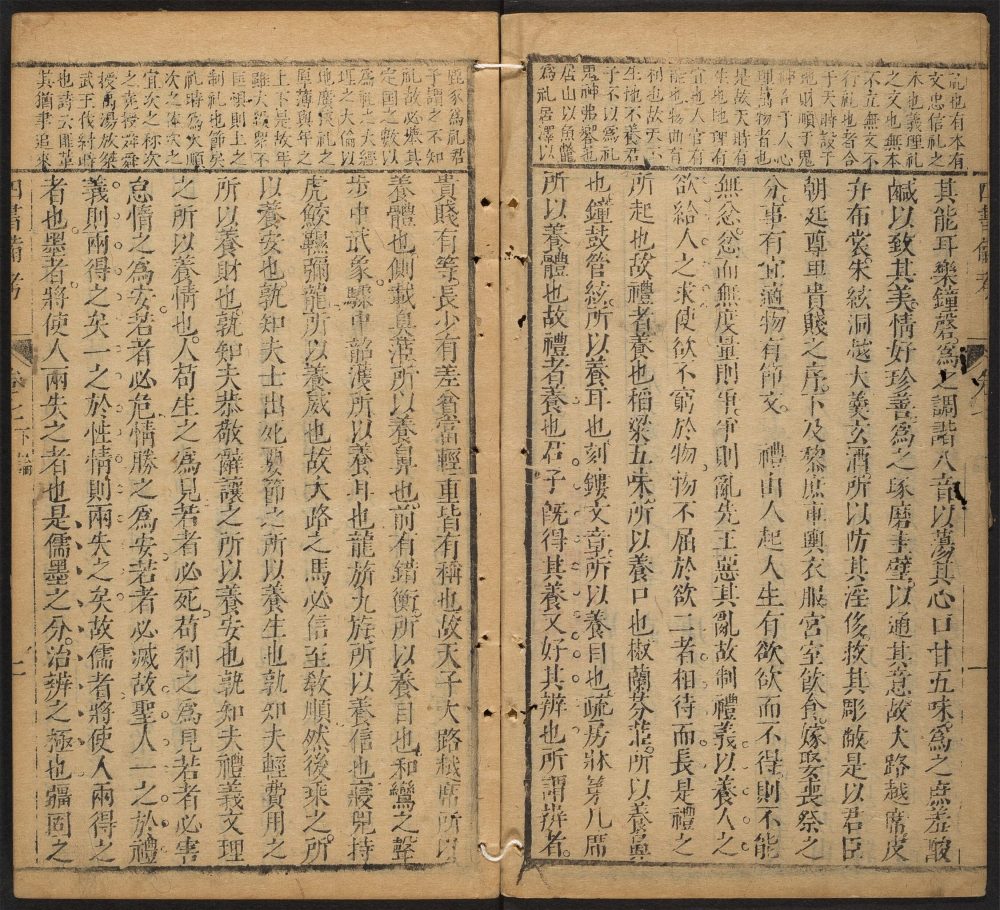 礼也有本有
文忠信礼之
本也義理礼
之文也無本
不立無文不
行礼也者合
于天時設于
地財順于鬼
神合于人心
理萬物者也
是故天時有
生也地理有
宜也人官有
能也物曲有
利也故天不
生地不養君
子不以為礼
鬼神弗饗也
居山以魚鱉
為礼居澤以
其能耳樂鐘磬為之調諧八音以蕩其心口甘五味為之庶羞酸
鹹以致其美情好珍善為之琢磨圭璧以通其意故大路越席皮
弁布裳朱絃洞越大羹玄酒所以防其淫侈救其彫敝是以君臣
朝廷尊卑貴賤之序下及黎庶車輿衣服宮室飲食嫁娶喪祭之
分事有宜適物有節文 禮由人起人生有欲欲而不得則不能
無忿忿而無度量則爭爭則亂先王惡其亂故制禮義以養人之
欲給人之求使欲不窮於物物不屈於欲二者相待而長是禮之
所起也故禮者養也稻粱五味所以養口也椒蘭芬茝所以養鼻
也鐘鼓管絃所以養耳也刻鏤文章所以養目也疏房牀笫几席
所以養體也故禮者養也君子既得其養又好其辨也所謂辨者
鹿豕為礼君
子謂之不知
礼故必舉其
定國之數以
為礼之大經
理之大倫以
地廣狹礼之
厚薄與年之
上下是故年
雖大殺眾不
匡懼則上之
制礼也節矣
礼時為大順
次之體次之
宜次之称次
之堯授舜舜
授禹湯放桀
武王伐紂時
也詩云匪革
其猶聿追來
貴賤有等長少有差貧富輕重皆有稱也故天子大路越席所以
養體也側載臭茝所以養鼻也前有錯衡所以養目也和鸞之聲
步中武象驟中韶濩所以養耳也龍旂九斿所以養信也寢兕持
虎鮫韅彌龍所以養威也故大路之馬必信至教順然後乘之所
以養安也孰知夫士出死要節之所以養生也孰知夫輕費用之
所以養財也孰知夫恭敬辭讓之所以養安也孰知夫禮義文理
之所以養情也人苟生之為見若者必死苟利之為見若者必害
怠惰之為安若者必危情勝之為安若者必滅故聖人一之於禮
義則兩得之矣一之於性情則兩失之矣故儒者將使人兩得之
者也墨者將使人兩失之者也是儒墨之分治辨之極也疆固之
四書備考 下論 二